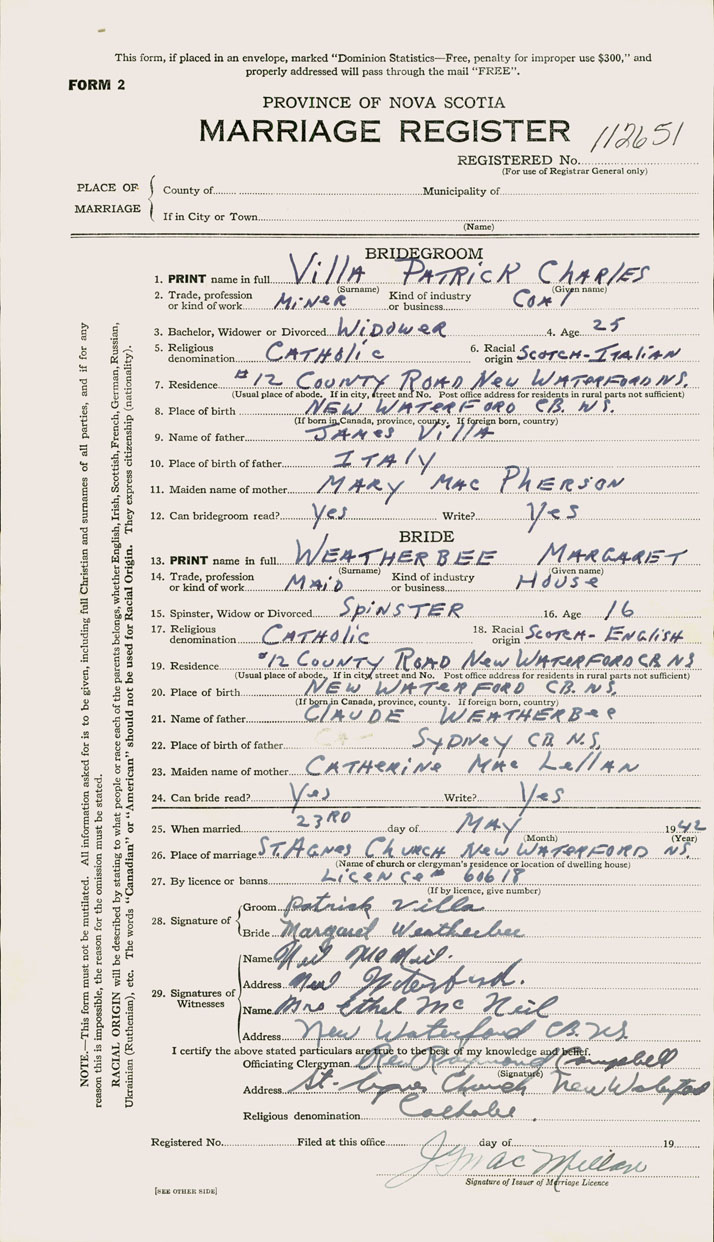 This form, if placed in an envelope, marked "Dominion Statistics—Free, penalty for improper use $300," and
properly addressed will pass through the mail "FREE".
FORM 2
PROVINCE OF NOVA SCOTIA
MARRIAGE REGISTER 112651
REGISTERED No.
(For use of Registrar General only)
PLACE OF MARRIAGE
County of Municipality of
If in City or Town
(Name)
BRIDEGROOM
1. PRINT name in full Villa Patrick Charles
(Surname) (Given name)
2. Trade, profession or kind of work Miner Kind of industry or business Coal
3. Bachelor, Widower or Divorced Widower 4. Age 25
5. Religious denomination Catholic 6. Racial origin Scotch-Italian
7. Residence #12 County Road New Waterford N.S.
(Usual place of abode. If in city, street and No. Post office address for residents in rural parts not sufficient)
8. Place of birth New Waterford C.B. N.S.
(If born in Canada, province, county. If foreign born, country)
9. Name of father James Villa
10. Place of birth of father Italy
11. Maiden name of mother Mary MacPherson
12. Can bridegroom read? Yes Write? Yes
BRIDE
13. PRINT name in full Weatherbee Margaret
(Surname) (Given name)
14. Trade, profession or kind of work Maid Kind of industry or business House
15. Spinster, Widow or Divorced Spinster 16. Age 16
17. Religious denomination Catholic 18. Racial origin Scotch-English
19. Residence #12 County Road New Waterford C.B. N.S
(Usual place of abode. If in city, street and No. Post office address for residents in rural parts not sufficient)
20. Place of birth New Waterford C.B. N.S.
(If born in Canada, province, county. If foreign born, country)
21. Name of father Claude Weatherbee
22. Place of birth of father Sydney C.B. N.S.
23. Maiden name of mother Catherine MacLellan
24. Can bride read? Yes Write? Yes
25. When married 23rd day of May 1942
(Month) (Year)
26. Place of marriage St. Agnes Church New Waterford N.S.
(Name of church or clergyman's residence or location of dwelling house)
27. By licence or banns Licence # 60618
(If by licence, give number)
28. Signature of
Groom Patrick Villa
Bride Margaret Weatherbee
29. Signatures of Witnesses
Name Neil McNeil.
Address New Waterford.
Name Mrs Ethel McNeil
Address New Waterford C.B. N.S.
I certify the above stated particulars are true to the best of my knowledge and belief.
Officiating Clergyman Rev Raymond Campbell
(Signature)
Address St. Agnes Church New Waterford
Religious denomination Catholic.
Registered No. Filed at this office day of 19
J G MacMillan
Signature of Issuer of Marriage Licence
[SEE OTHER SIDE]
NOTE.—This form must not be mutilated. All information asked for is to be given, including full Christian and surnames of all parties, and if for any
reason this is impossible, the reason for the omission must be stated.
RACIAL ORIGIN will be described by stating to what people or race each of the parents belongs, whether English, Irish, Scottish, French, German, Russian,
Ukrainian (Ruthenian), etc. The words "Canadian" or "American" should not be used for Racial Origin. They express citizenship (nationality).